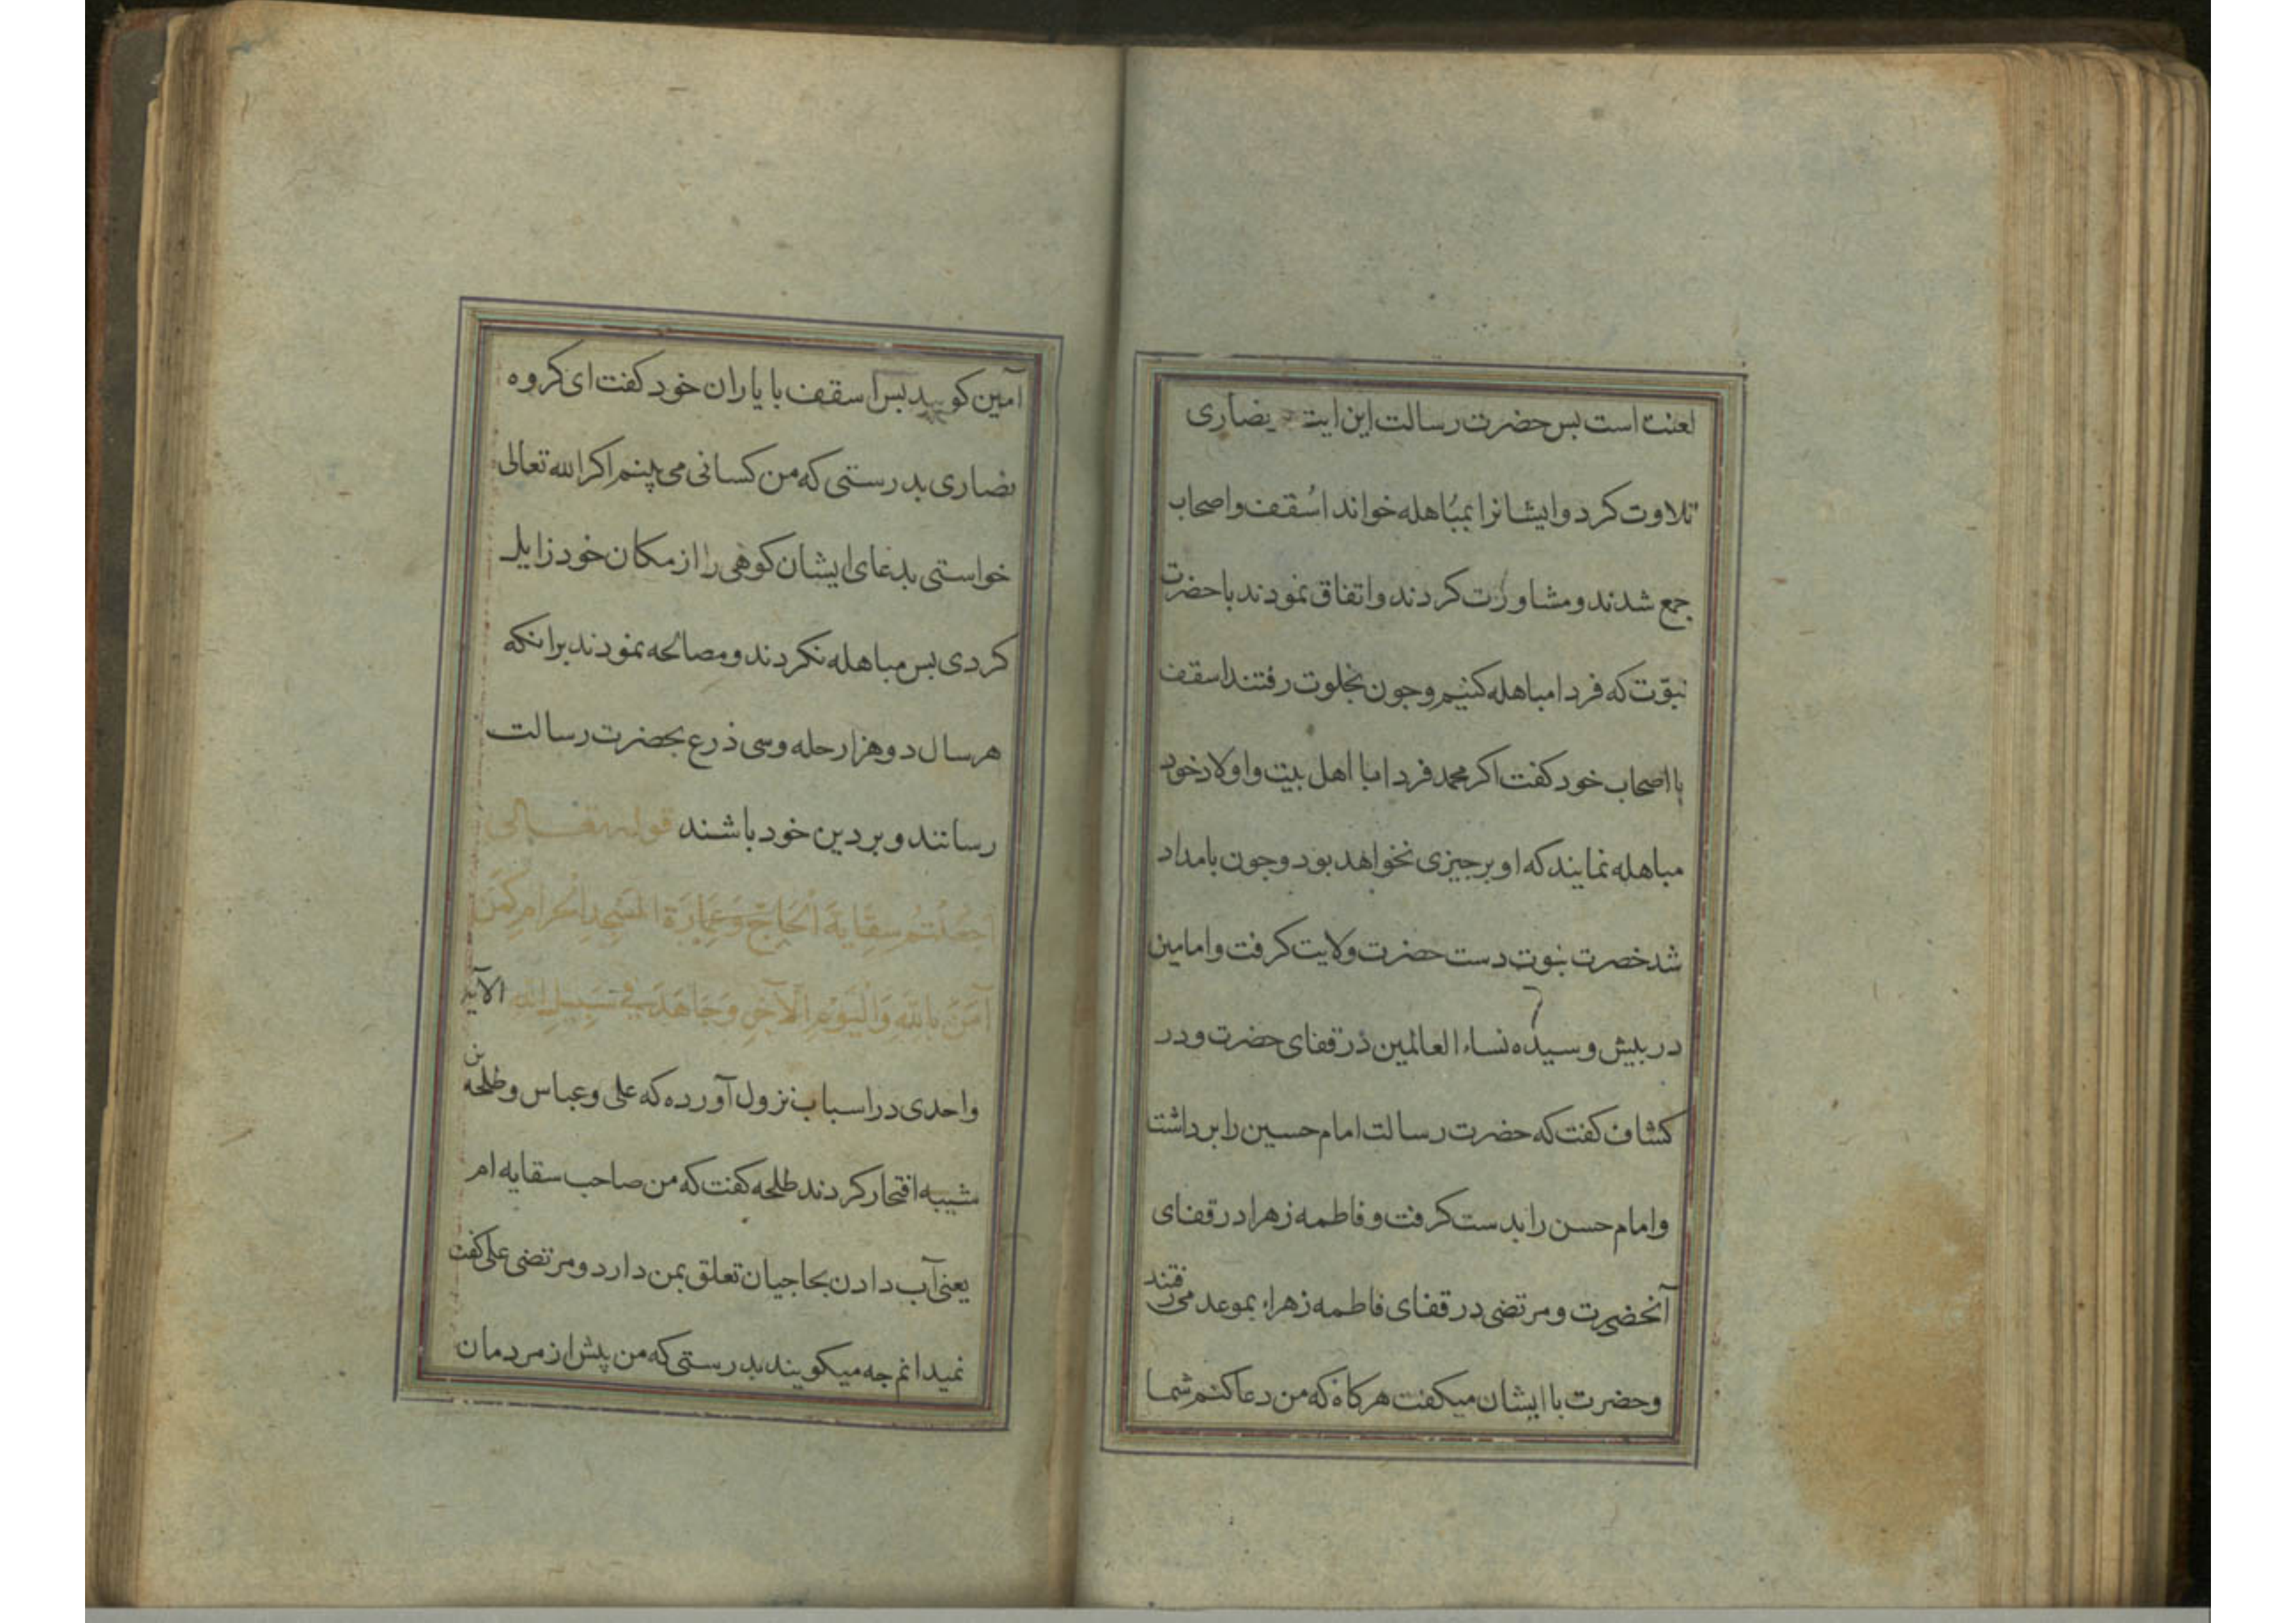 لعنت است بس حضرت رسالت این ایت نصاری
تلاوت کرد و ایشانرا بمُباهله خواند اسُقف و اصحاب
جمع شدند و مشاورت کردند و اتفاق نمودند با حضرت
نبوّت که فردا مباهله کنیم و جون بخلوت رفتند اسقف
با اصحاب خود کفت اکر محمد فردا با اهل بیت و اولاد خود
مباهله نمایند که او بر جیزی نخواهد بود و جون بامداد
شد خصرت نبوت دست حضرت ولایت کرفت و امامین
در بیش و سیده نساء العالمین در قفای حضرت و در
کشاف کفت که حضرت رسالت امام حسین را بر داشتا
و امام حسن را بدست کرفت و فاطمه زهرا در قفای
آنحضرت و مرتضی در قفای فاطمه زهرا بموعد می رفتند
و حضرت با ایشان میکفت هر کاه که من دعا کنم شما
آمین کویید بس اسقف با یاران خود کفت ای کروه
نصاری بدرستی که من کسانی می بینم اکر الله تعالی
خواستی بدعای ایشان کوهی را از مکان خود زایل
کردی بس مباهله نکردند و مصالحه نمودند برانکه
هر سال دو هزار حله و سی ذرع بحضرت رسالت
رسانند و بر دین خود باشند قوله تعالی
اَجَعَلْتُمْ سِقَایَةَ الْحَاجِّ وَعِمَارَةَ الْمَسْجِدِ الْحَرَامِ کَمَنْ
آمَنَ بِاللَّهِ وَالْیَوْمِ الْآخِرِ وَجَاهَدَ فِی سَبِیلِ اللَّهِ الآیه
واحدی در اسباب نزول آورده که علی و عباس و طلحه بن
شیبه افتخار کردند طلحه کفت که من صاحب سقایه ام
یعنی آب دادن بحاجیان تعلق بمن دارد و مرتضی علی کفت
نمیدانم جه میکویند بدرستی که من پیش از مردمان